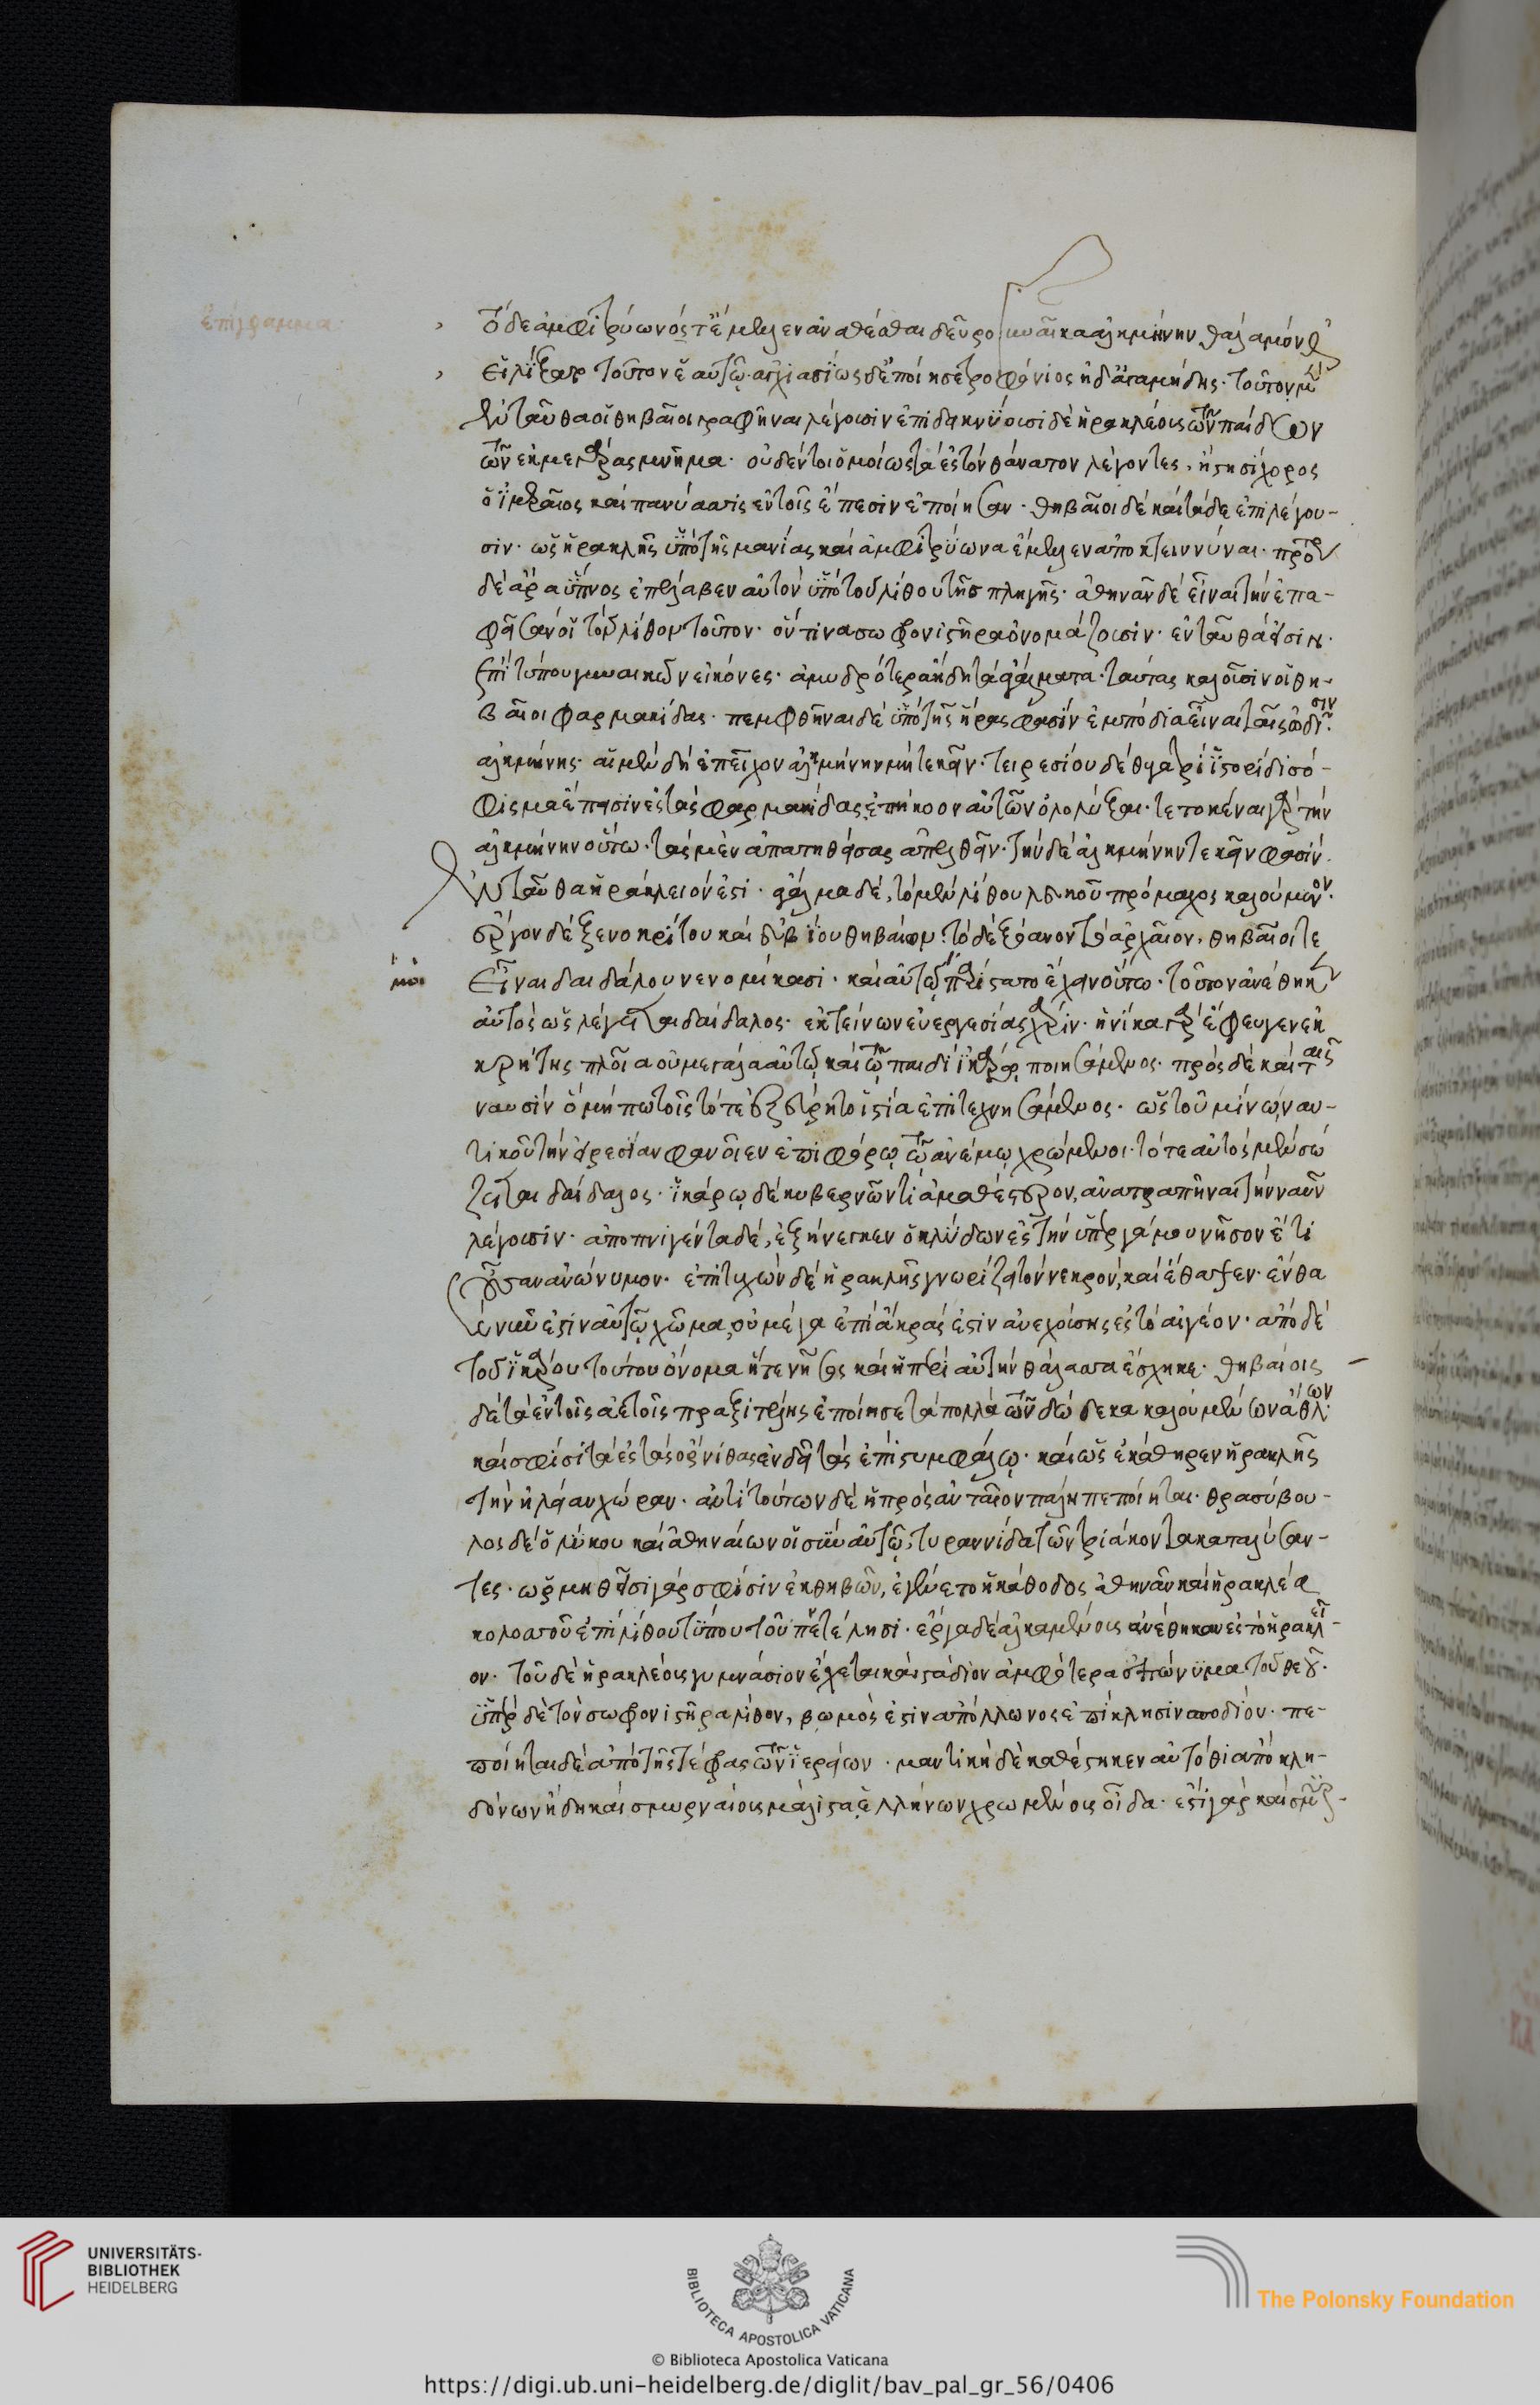 ἐπίγραμμα
ὁ δὲ ἀμφιτρύων ὅς τ' ἔμελλεν ἀναθέσθαι δεῦρο γυναῖκα ἀλκμήνην θάλαμόν
εἱλίξατο τοῦτον ἑαυτῷ. ἀγχιασίως δ' ἐποίησε τροφώνιος ἠδ' ἀγαμήδης. τοῦτον μὲν
ἐνταῦθα οἱ θηβαῖοι γραφῆναι λέγουσιν ἐπιδεικνύουσι δὲ ἡρακλέους τῶν παίδων
τῶν ἐκ μεγάρας μνῆμα. οὐδέν τι ὁμοίως τὰ ἐς τὸν θάνατον λέγοντες, ἢ στησίχορος
ὁ ἱμεραῖος καὶ πανύασσις ἐν τοῖς ἔπεσιν ἐποίησαν. θηβαῖοι δὲ καὶ τάδε ἐπιλέγου-
σιν. ὡς ἡρακλῆς ὑπὸ τῆς μανίας καὶ ἀμφιτρύωνα ἔμελλεν ἀποκτειννύναι. πρότερον
δὲ ἄρα ὕπνος ἐπέλαβεν αὐτὸν ὑπὸ τοῦ λίθου τῆς πληγῆς. ἀθηνᾶν δὲ εἶναι τὴν ἐπα-
φεῖσάν οἱ τὸν λίθον τοῦτον. ὅν τινα σωφρονιστῆρα ὀνομάζουσιν. ἐνταῦθά εἰσιν
ἐπὶ τύπου γυναικῶν εἰκόνες. ἀμυδρότερα ἤδη τὰ ἀγάλματα. ταύτας καλοῦσιν οἱ θη-
βαῖοι φαρμακίδας. πεμφθῆναι δὲ ὑπὸ τῆς ἥρας φασὶν ἐμπόδια εἶναι ταῖς ὠδῖσιν
ἀλκμήνης. αἱ μὲν δὴ ἐπεῖχον ἀλκμήνην μὴ τεκεῖν. τειρεσίου δὲ θυγατρὶ ἱστορίδι σό-
φισμα ἔπεισιν ἐς τὰς φαρμακίδας ἐπήκοον αὐτῶν ὀλολύξαι. τετοκέναι γὰρ τὴν
ἀλκμήνην οὕτω. τὰς μὲν ἀπατηθείσας ἀπελθεῖν. τὴν δὲ ἀλκμήνην τεκεῖν φασίν.
ἐνταῦθα ἡράκλειόν ἐστι. ἄγαλμα δέ, τὸ μὲν λίθου λευκοῦ πρόμαχος καλούμενον.
ἔργον δὲ ξενοκρίτου καὶ εὐβίου θηβαίων. τὸ δὲ ξόανον τὸ ἀρχαῖον. θηβαῖοί τε
εἶναι δαιδάλου νενομίκασι. καὶ αὐτῷ μοι παρίστατο ἔχειν οὕτω. τοῦτον ἀνέθηκεν
αὐτὸς ὡς λέγεται δαίδαλος. ἐκτείνων εὐεργεσίας χάριν. ἡνίκα γὰρ ἔφευγεν ἐκ
κρήτης πλοῖα οὐ μεγάλα αὐτῷ καὶ τῷ παιδὶ ἰκάρῳ ποιησάμενος. πρὸς δὲ καὶ ταῖς
ναυσὶν ὃ μήπω τοῖς τότε ἐξεύρητο ἱστία ἐπιτεχνησάμενος. ὡς τοῦ μίνω ναυ-
τικοῦ τὴν εἰρεσίαν φανοῖεν ἐπιφόρῳ τῷ ἀνέμῳ χρώμενοι. τότε αὐτὸς μὲν σώ-
ζεται δαίδαλος. ἰκάρῳ δὲ κυβερνῶντι ἀμαθέστερον, ἀνατραπῆναι τὴν ναῦν
λέγουσιν. ἀποπνιγέντα δέ, ἐξήνεγκεν ὁ κλύδων ἐς τὴν ὑπὲρ σάμου νῆσον ἔτι
οὖσαν ἀνώνυμον. ἐπιτυχὼν δὲ ἡρακλῆς γνωρίζει τὸν νεκρόν, καὶ ἔθαψεν. ἔνθα
καὶ νῦν ἔστιν αὐτῷ χῶμα, οὐ μέγα ἐπὶ ἄκρας ἐστιν ἀνεχούσης ἐς τὸ αἰγέον. ἀπὸ δὲ
τοῦ ἰκάρου τούτου ὄνομα ἥ τε νῆσος καὶ ἡ περὶ αὐτὴν θάλασσα ἔσχηκε. θηβαίοις
δὲ τὰ ἐν τοῖς ἀετοῖς πραξιτέλης ἐποίησε τὰ πολλὰ τῶν δώδεκα καλουμένων ἄθλων.
καὶ σφίσι τὰ ἐς τὰς ὄρνιθας ἐνδεῖ τὰς ἐπὶ στυμφάλῳ. καὶ ὡς ἐκάθηρεν ἡρακλῆς
τὴν ἠλείαν χώραν. ἀντὶ τούτων δὲ ἡ πρὸς ἀνταῖον πάλη πεποίηται. θρασύβου-
λος δὲ ὁ λύκου καὶ ἀθηναίων οἱ σὺν αὐτῷ, τυραννίδα τῶν τριάκοντα καταλύσαν-
τες. ὡρμηθεῖσι γάρ σφίσιν ἐκ θηβῶν, ἐγένετο ἡ κάθοδος ἀθηνᾶν καὶ ἡρακλέα
κολοσσοῦ ἐπὶ λίθου τύπου τοῦ πεντέλησι. ἔργα δὲ ἀλκαμένους ἀνέθηκαν ἐς τὸ ἡρακλεῖ-
ον. τοῦ δὲ ἡρακλέους γυμνάσιον ἔχεται καὶ στάδιον ἀμφότερα ἐπώνυμα τοῦ θεοῦ.
ὑπὲρ δὲ τὸν σωφρονιστῆρα λίθον, βωμός ἐστιν ἀπόλλωνος ἐπίκλησιν σποδίου. πε-
ποίηται δὲ ἀπὸ τῆς τέφρας τῶν ἱερείων. μαντικὴ δὲ καθέστηκεν αὐτόθι ἀπὸ κλη-
δόνων ᾗ δὴ καὶ σμυρναίους μάλιστα ἑλλήνων χρωμένους οἶδα. ἔστι γὰρ καὶ σμυρ-
UNIVERSITÄTS-
BIBLIOTHEK
HEIDELBERG
BIBLIOTECA APOSTOLICA VATICANA
The Polonsky Foundation
© Biblioteca Apostolica Vaticana
https://digi.ub.uni-heidelberg.de/diglit/bav_pal_gr_56/0406